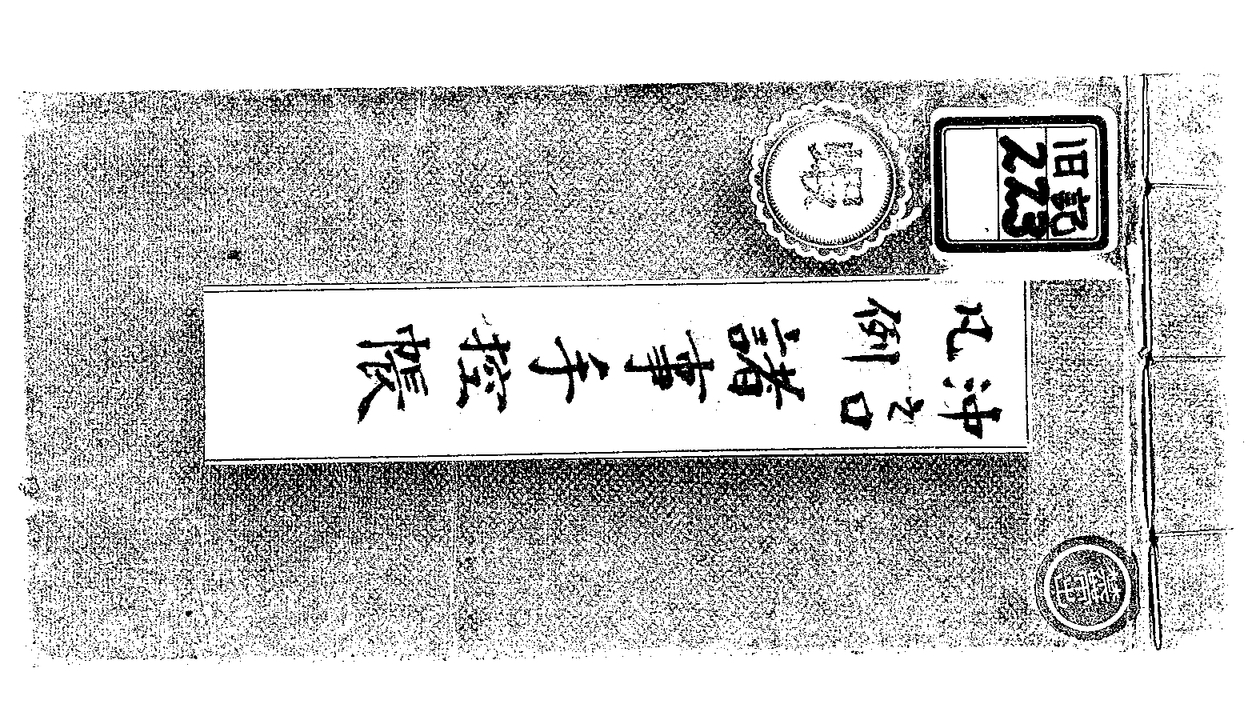 旧記
223
沖之口
凡例
諸事手控帳